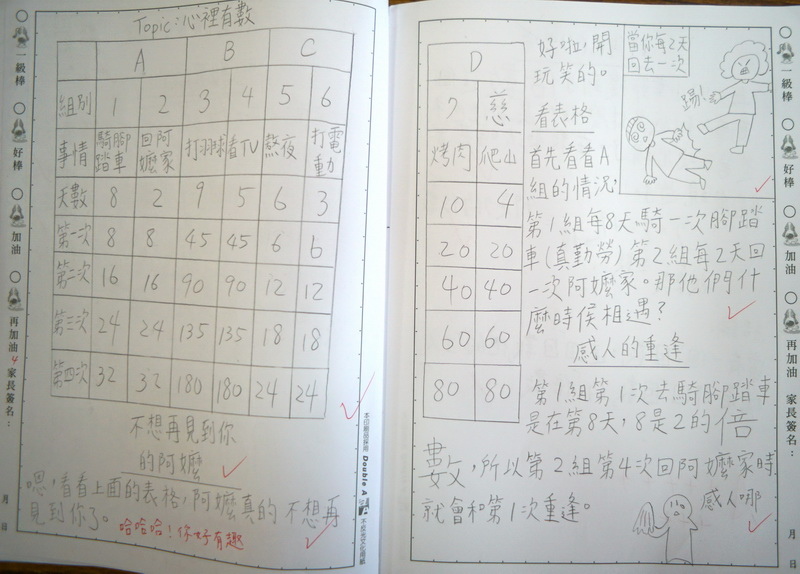 Topic:心裡有數
A B C
組別 1 2 3 4 5 6
事情 騎腳踏車 回阿嬤家 打羽球 看TV 熬夜 打電動
天數 8 2 9 5 6 3
第一次 8 8 45 45 6 6
第二次 16 16 90 90 12 12
第三次 24 24 135 135 18 18
第四次 32 32 180 180 24 24
不想再見到你
的阿嬤
嗯,看看上面的表格,阿嬤真的不想再
見到你了。
哈哈哈!你好有趣
一級棒
好棒
加油
再加油
4
家長簽名:
月 日
本印刷簿採用 Double A
D
7 慈
烤肉 爬山
10 4
20 20
40 40
60 60
80 80
好啦,開
玩笑的。
當你每2天
回去一次
踢!
看表格
首先看看A
組的情況:
第1組每8天騎一次腳踏
車(真勤勞)第2組每2天回
一次阿嬤家。那他們什
麼時候相遇?
感人的重逢
第1組第1次去騎腳踏車
是在第8天,8是2的倍
數,所以第2組第4次回阿嬤家時
就會和第1次重逢。
感人哪
一級棒
好棒
加油
再加油
家長簽名:
月 日